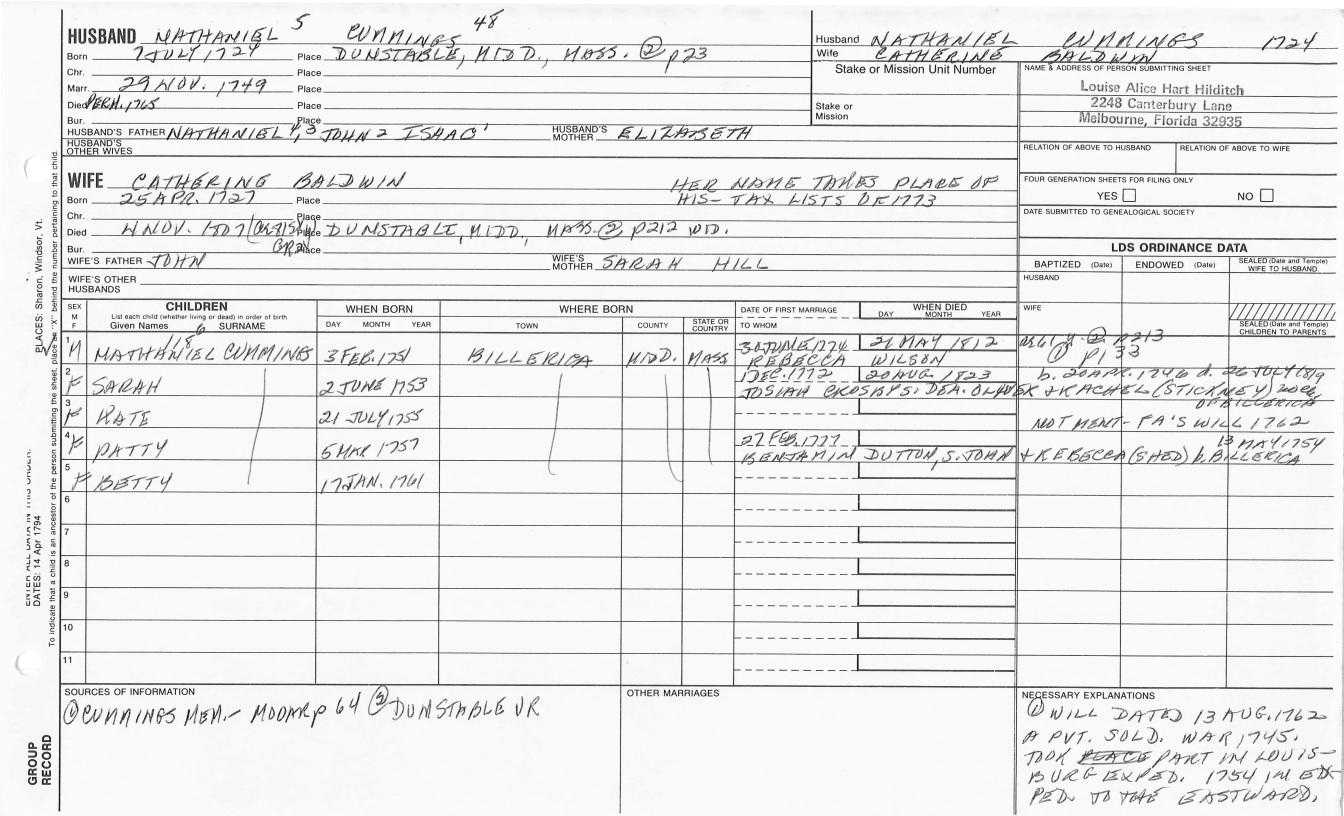 HUSBAND NATHANIEL 5 CUMMINGS 48
Born 7 JULY 1724 Place DUNSTABLE, MIDD., MASS. ② p23
Chr. Place
Marr. 29 NOV. 1749 Place
Died PERH. 1765 Place
Bur. Place
HUSBAND'S FATHER NATHANIEL 4, 3 JOHN 2 ISAAC 1 HUSBAND'S MOTHER ELIZABETH
HUSBAND'S OTHER WIVES
Husband NATHANIEL CUMMINGS 1724
Wife CATHERINE BALDWIN
Stake or Mission Unit Number
Stake or Mission
NAME & ADDRESS OF PERSON SUBMITTING SHEET
Louise Alice Hart Hilditch
2248 Canterbury Lane
Melbourne, Florida 32935
RELATION OF ABOVE TO HUSBAND RELATION OF ABOVE TO WIFE
FOUR GENERATION SHEETS FOR FILING ONLY
YES NO
DATE SUBMITTED TO GENEALOGICAL SOCIETY
WIFE CATHERINE BALDWIN HER NAME TAKES PLACE OF
Born 25 APR. 1727 Place HIS- TAX LISTS OF 1773
Chr. Place
Died NOV. 1807 Place DUNSTABLE, MIDD., MASS. ② p212 WD.
Bur. Place
WIFE'S FATHER JOHN WIFE'S MOTHER SARAH HILL
WIFE'S OTHER HUSBANDS
LDS ORDINANCE DATA
BAPTIZED (Date) ENDOWED (Date) SEALED (Date and Temple) WIFE TO HUSBAND
HUSBAND
WIFE
SEALED (Date and Temple) CHILDREN TO PARENTS
SEX M F CHILDREN WHEN BORN WHERE BORN DATE OF FIRST MARRIAGE WHEN DIED
List each child (whether living or dead) in order of birth
Given Names SURNAME DAY MONTH YEAR TOWN COUNTY STATE OR COUNTRY TO WHOM DAY MONTH YEAR
1 M NATHANIEL 6 CUMMINGS 118 3 FEB. 1751 BILLERICA MIDD. MASS 30 JUNE 1774 21 MAY 1812 ② p213
REBECCA WILSON ① p133
2 F SARAH 2 JUNE 1753 1 DEC. 1772 20 AUG. 1823 b. 20 APR. 1746 d. 26 JULY 1819
JOSIAH CROSBY S. DEA. OLIVER & RACHEL (STICKNEY)
OF BILLERICA
3 F KATE 21 JULY 1755 NOT MENT- FA'S WILL 1762
4 F PATTY 5 MAR 1757 27 FEB. 1777 13 MAY 1754
BENJAMIN DUTTON, S. JOHN & REBECCA (SHED) b. BILLERICA
5 F BETTY 17 JAN. 1761
6
7
8
9
10
11
SOURCES OF INFORMATION
① CUMMINGS MEM.- MOOAR p 64 ② DUNSTABLE VR
OTHER MARRIAGES
NECESSARY EXPLANATIONS
① WILL DATED 13 AUG. 1762
A PVT. SOLD. WAR 1745.
TOOK PLACE PART IN LOUIS-
BURG EXPED. 1754 IN EX-
PED. TO THE EASTWARD.
ENTER ALL DATA IN THIS ORDER:
DATES: 14 Apr 1794
PLACES: Sharon, Windsor, Vt.
To indicate that a child is an ancestor of the person submitting the sheet, place an "X" behind the number pertaining to that child.
GROUP RECORD